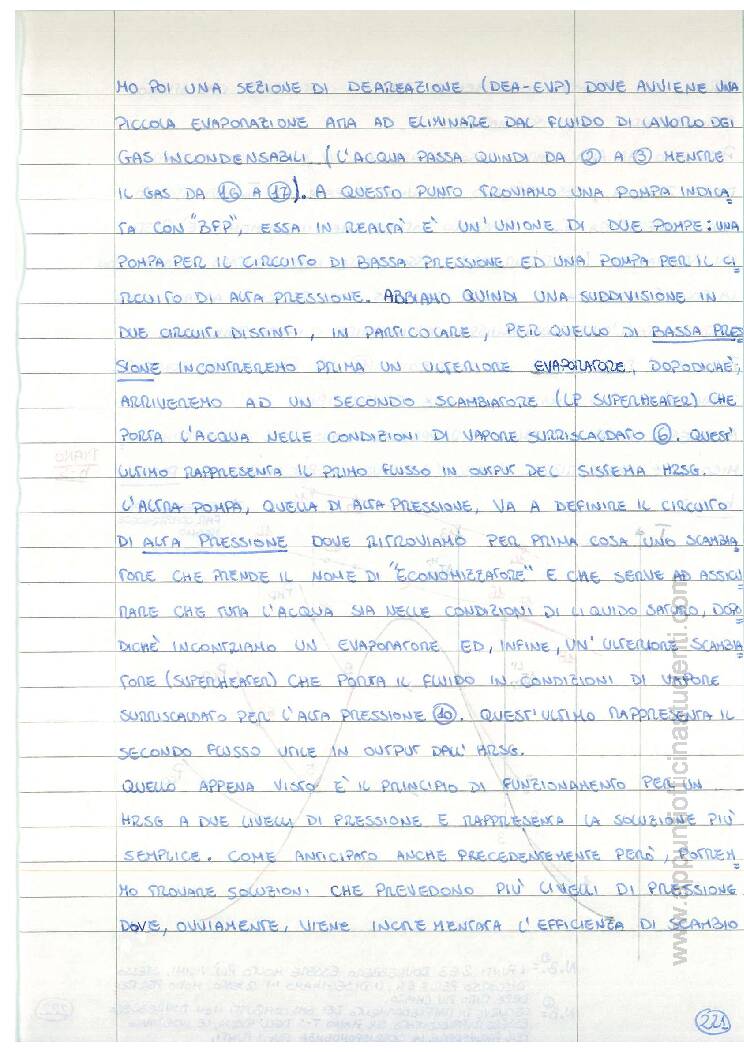 MO POI UNA SEZIONE DI DEAREAZIONE (DEA-EVP) DOVE AVVIENE UNA
PICCOLA EVAPORAZIONE ATTA AD ELIMINARE DAL FLUIDO DI LAVORO DEI
GAS INCONDENSABILI (L'ACQUA PASSA QUINDI DA ② A ③ MENTRE
IL GAS DA ⑯ A ⑰). A QUESTO PUNTO TROVIAMO UNA POMPA INDICA
TA CON "BFP", ESSA IN REALTÀ È UN'UNIONE DI DUE POMPE: UNA
POMPA PER IL CIRCUITO DI BASSA PRESSIONE ED UNA POMPA PER IL CI
RCUITO DI ALTA PRESSIONE. ABBIAMO QUINDI UNA SUDDIVISIONE IN
DUE CIRCUITI DISTINTI, IN PARTICOLARE, PER QUELLO DI BASSA PRES
SIONE INCONTREREMO PRIMA UN ULTERIORE EVAPORATORE, DOPODICHÈ,
ARRIVEREMO AD UN SECONDO SCAMBIATORE (LP SUPERHEATER) CHE
PORTA L'ACQUA NELLE CONDIZIONI DI VAPORE SURRISCALDATO ⑥. QUEST'
ULTIMO RAPPRESENTA IL PRIMO FLUSSO IN OUTPUT DEL SISTEMA HRSG.
L'ALTRA POMPA, QUELLA DI ALTA PRESSIONE, VA A DEFINIRE IL CIRCUITO
DI ALTA PRESSIONE DOVE RITROVIAMO PER PRIMA COSA UNO SCAMBIA
TORE CHE PRENDE IL NOME DI "ECONOMIZZATORE" E CHE SERVE AD ASSICU
RARE CHE TUTTA L'ACQUA SIA NELLE CONDIZIONI DI LIQUIDO SATURO, DOPO
DICHÈ INCONTRIAMO UN EVAPORATORE ED, INFINE, UN'ULTERIORE SCAMBIA
TORE (SUPERHEATER) CHE PORTA IL FLUIDO IN CONDIZIONI DI VAPORE
SURRISCALDATO PER L'ALTA PRESSIONE ⑩. QUEST'ULTIMO RAPPRESENTA IL
SECONDO FLUSSO UTILE IN OUTPUT DALL'HRSG.
QUELLO APPENA VISTO È IL PRINCIPIO DI FUNZIONAMENTO PER UN
HRSG A DUE LIVELLI DI PRESSIONE E RAPPRESENTA LA SOLUZIONE PIÙ
SEMPLICE. COME ANTICIPATO ANCHE PRECEDENTEMENTE PERÒ, POTREM
MO TROVARE SOLUZIONI CHE PREVEDONO PIÙ LIVELLI DI PRESSIONE
DOVE, OVVIAMENTE, VIENE INCREMENTATA L'EFFICIENZA DI SCAMBIO
221
www.appuntiofficinastudenti.com